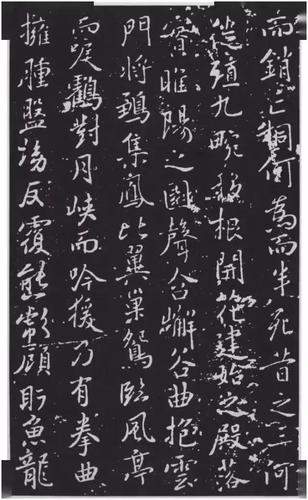 而銷亡桐何為而半死昔之三河
徙殖九畹移根開花建始之殿落
實睢陽之園聲含嶰谷曲抱雲
門將鵷集鳳比翼巢鴛臨風亭
而唳鸖對月峽而吟猨乃有拳曲
擁腫盤坳反覆熊彪顧盼魚龍